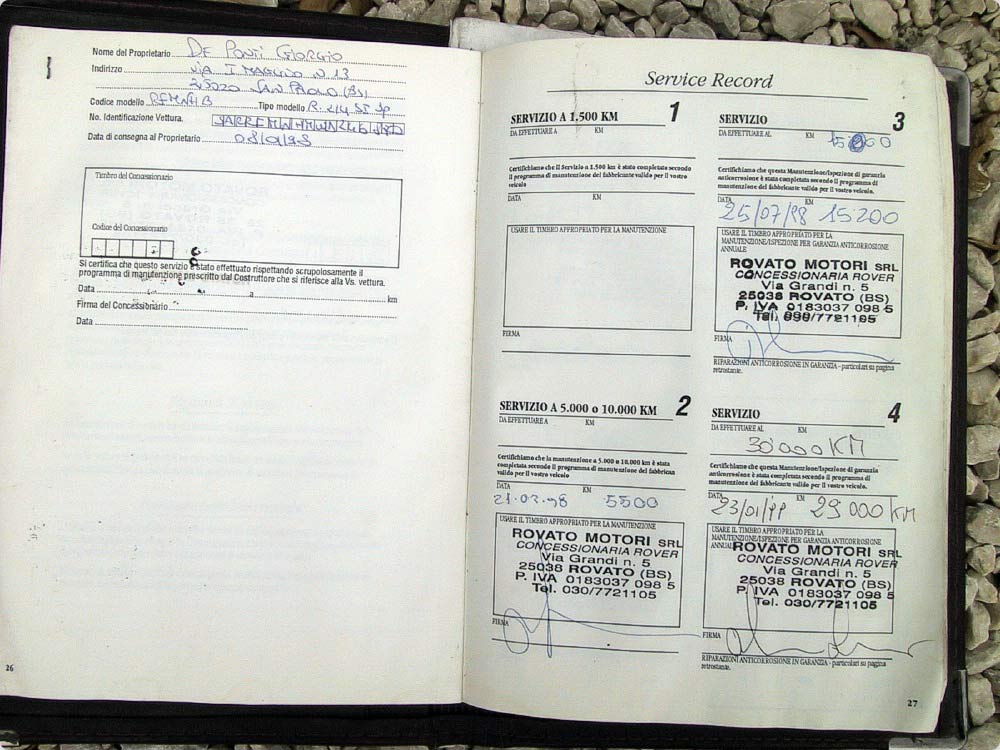 Nome del Proprietario DE PONTI GIORGIO
Indirizzo VIA I MAGGIO N 13
25020 SAN PAOLO (BS)
Codice modello Tipo modello R. 214 SI 5p
No. Identificazione Vettura.
Data di consegna al Proprietario
Timbro del Concessionario
Codice del Concessionario
Si certifica che questo servizio è stato effettuato rispettando scrupolosamente il
programma di manutenzione prescritto dal Costruttore che si riferisce alla Vs. vettura.
Data a km
Firma del Concessionario
Data
26
Service Record
SERVIZIO A 1.500 KM 1
DA EFFETTUARE A KM
Certifichiamo che il Servizio a 1.500 km è stato completato secondo
il programma di manutenzione del fabbricante valido per il vostro
veicolo
DATA KM
USARE IL TIMBRO APPROPRIATO PER LA MANUTENZIONE
FIRMA
SERVIZIO A 5.000 o 10.000 KM 2
DA EFFETTUARE A KM
Certifichiamo che la manutenzione a 5.000 o 10.000 km è stata
completata secondo il programma di manutenzione del fabbrican
valido per il vostro veicolo.
DATA KM
21.02.98 5500
USARE IL TIMBRO APPROPRIATO PER LA MANUTENZIONE
ROVATO MOTORI SRL
CONCESSIONARIA ROVER
Via Grandi n. 5
25038 ROVATO (BS)
P. IVA 0183037 098 5
Tel. 030/7721105
FIRMA
SERVIZIO 3
DA EFFETTUARE AL KM
15000
Certifichiamo che questa Manutenzione/Ispezione di garanzia
anticorrosione è stata completata secondo il programma di
manutenzione del fabbricante valido per il vostro veicolo.
DATA KM
25/07/98 15200
USARE IL TIMBRO APPROPRIATO PER LA
MANUTENZIONE/ISPEZIONE PER GARANZIA ANTICORROSIONE
ANNUALE
ROVATO MOTORI SRL
CONCESSIONARIA ROVER
Via Grandi n. 5
25038 ROVATO (BS)
P. IVA 0183037 098 5
Tel. 030/7721105
FIRMA
RIPARAZIONI ANTICORROSIONE IN GARANZIA - particolari su pagina
retrostante.
SERVIZIO 4
DA EFFETTUARE AL KM
30000 KM
Certifichiamo che questa Manutenzione/Ispezione di garanzia
anticorrosione è stata completata secondo il programma di
manutenzione del fabbricante valido per il vostro veicolo.
DATA KM
23/01/99 29000 KM
USARE IL TIMBRO APPROPRIATO PER LA
MANUTENZIONE/ISPEZIONE PER GARANZIA ANTICORROSIONE
ANNUALE
ROVATO MOTORI SRL
CONCESSIONARIA ROVER
Via Grandi n. 5
25038 ROVATO (BS)
P. IVA 0183037 098 5
Tel. 030/7721105
FIRMA
RIPARAZIONI ANTICORROSIONE IN GARANZIA - particolari su pagina
retrostante.
27